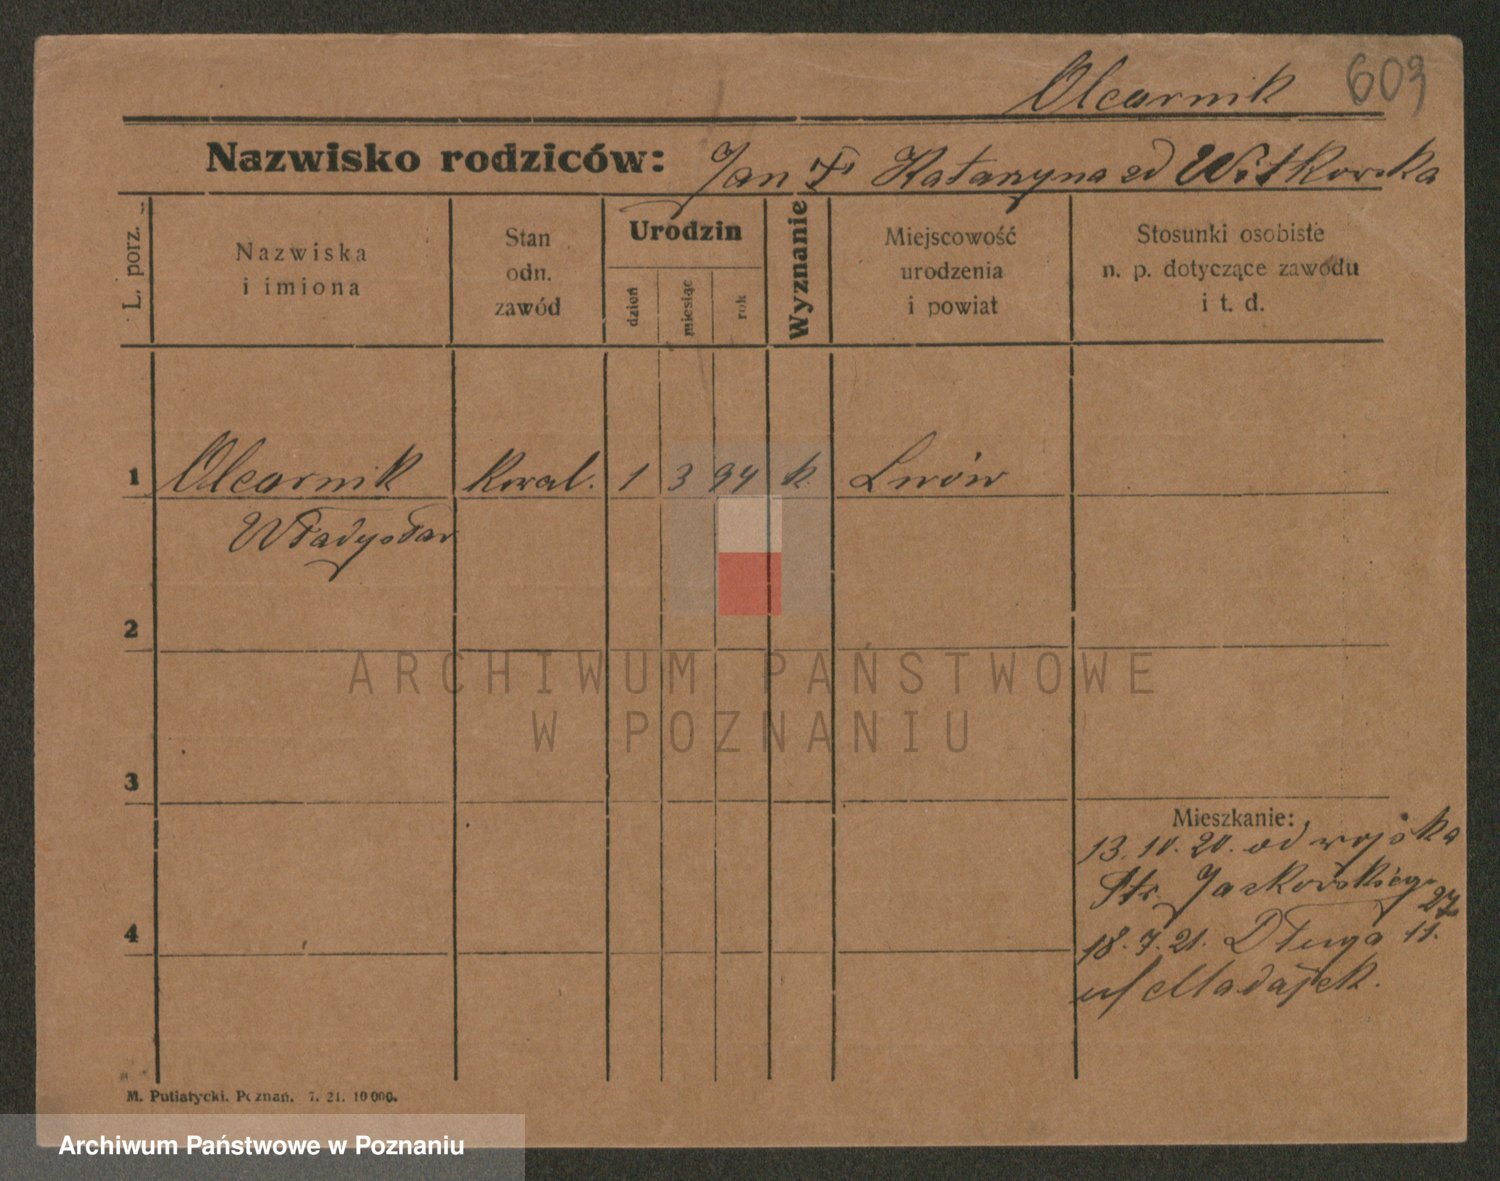 Olearnik 609
Nazwisko rodziców: Jan + Katarzyna zd Witkowska
L. porz.
Nazwiska
i imiona
Stan
odn.
zawód
Urodzin
dzień
miesiąc
rok
Wyznanie
Miejscowość
urodzenia
i powiat
Stosunki osobiste
n. p. dotyczące zawodu
i t. d.
1 Olearnik Kowal. 1 3 94 k. Lwów
Władysław
2
3
4
Mieszkanie:
13.10.20. od wojska
Str. Jackowskiego
27
18.7.21. Długa 11.
u/ Madajek.
M. Putiatycki. Poznań. 7. 21. 10 000.
ARCHIWUM PAŃSTWOWE
W POZNANIU
Archiwum Państwowe w Poznaniu